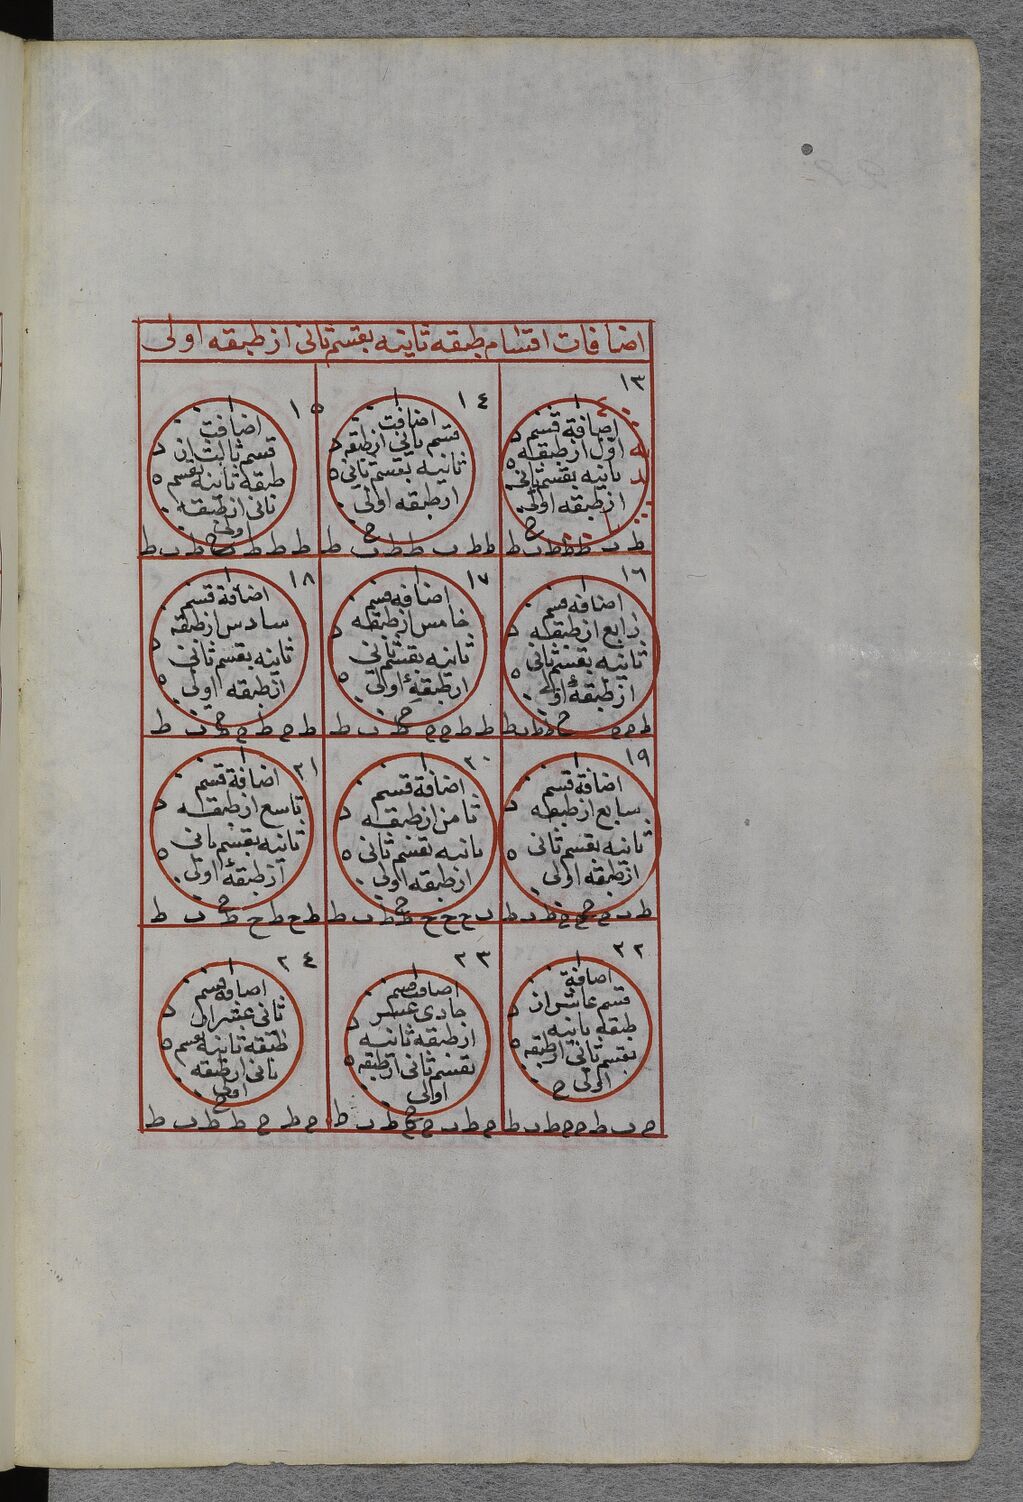 اضافات اقسام طبقه ثانیه بقسم ثانی از طبقه اولی
١٣
اضافة قسم
اوّل از طبقه
ثانیه بقسم ثانی
از طبقه اولی
١٤
اضافت
قسم ثانی از طبقه
ثانیه بقسم ثانی
از طبقه اولی
١٥
اضافت
قسم ثالث از
طبقه ثانیه بقسم
ثانی از طبقه
اولی
ط ب ط ط ط ب ط
ط ط ب ط ط ب ط
ط ط ط ب ط ب ط
١٦
اضافه قسم
رابع از طبقه
ثانیه بقسم ثانی
از طبقهٔ اولی
١٧
اضافه قسم
خامس از طبقه
ثانیه بقسم ثانی
از طبقهٔ اولی
١٨
اضافة قسم
سادس از طبقه
ثانیه بقسم ثانی
از طبقه اولی
ط ط ج ج ط ب ط
ط ج ط ج ط ب ط
١٩
اضافة قسم
سابع از طبقه
ثانیه بقسم ثانی
از طبقه اولی
٢٠
اضافة قسم
ثامن از طبقه
ثانیه بقسم ثانی
از طبقه اولی
٢١
اضافة قسم
تاسع از طبقه
ثانیه بقسم ثانی
از طبقهٔ اولی
ط ج ط ج ط ب ط
٢٢
اضافة
قسم عاشر از
طبقه ثانیه
بقسم ثانی از طبقه
اولی
٢٣
اضافت قسم
حادی عشر
از طبقه ثانیه
بقسم ثانی از طبقه
اولی
٢٤
اضافه قسم
ثانی عشر از
طبقه ثانیه بقسم
ثانی از طبقه
اولی
ج ب ط ج ج ط ب ط
ج ط ب ج ج ط ب ط
ج ط ج ط ط ب ط